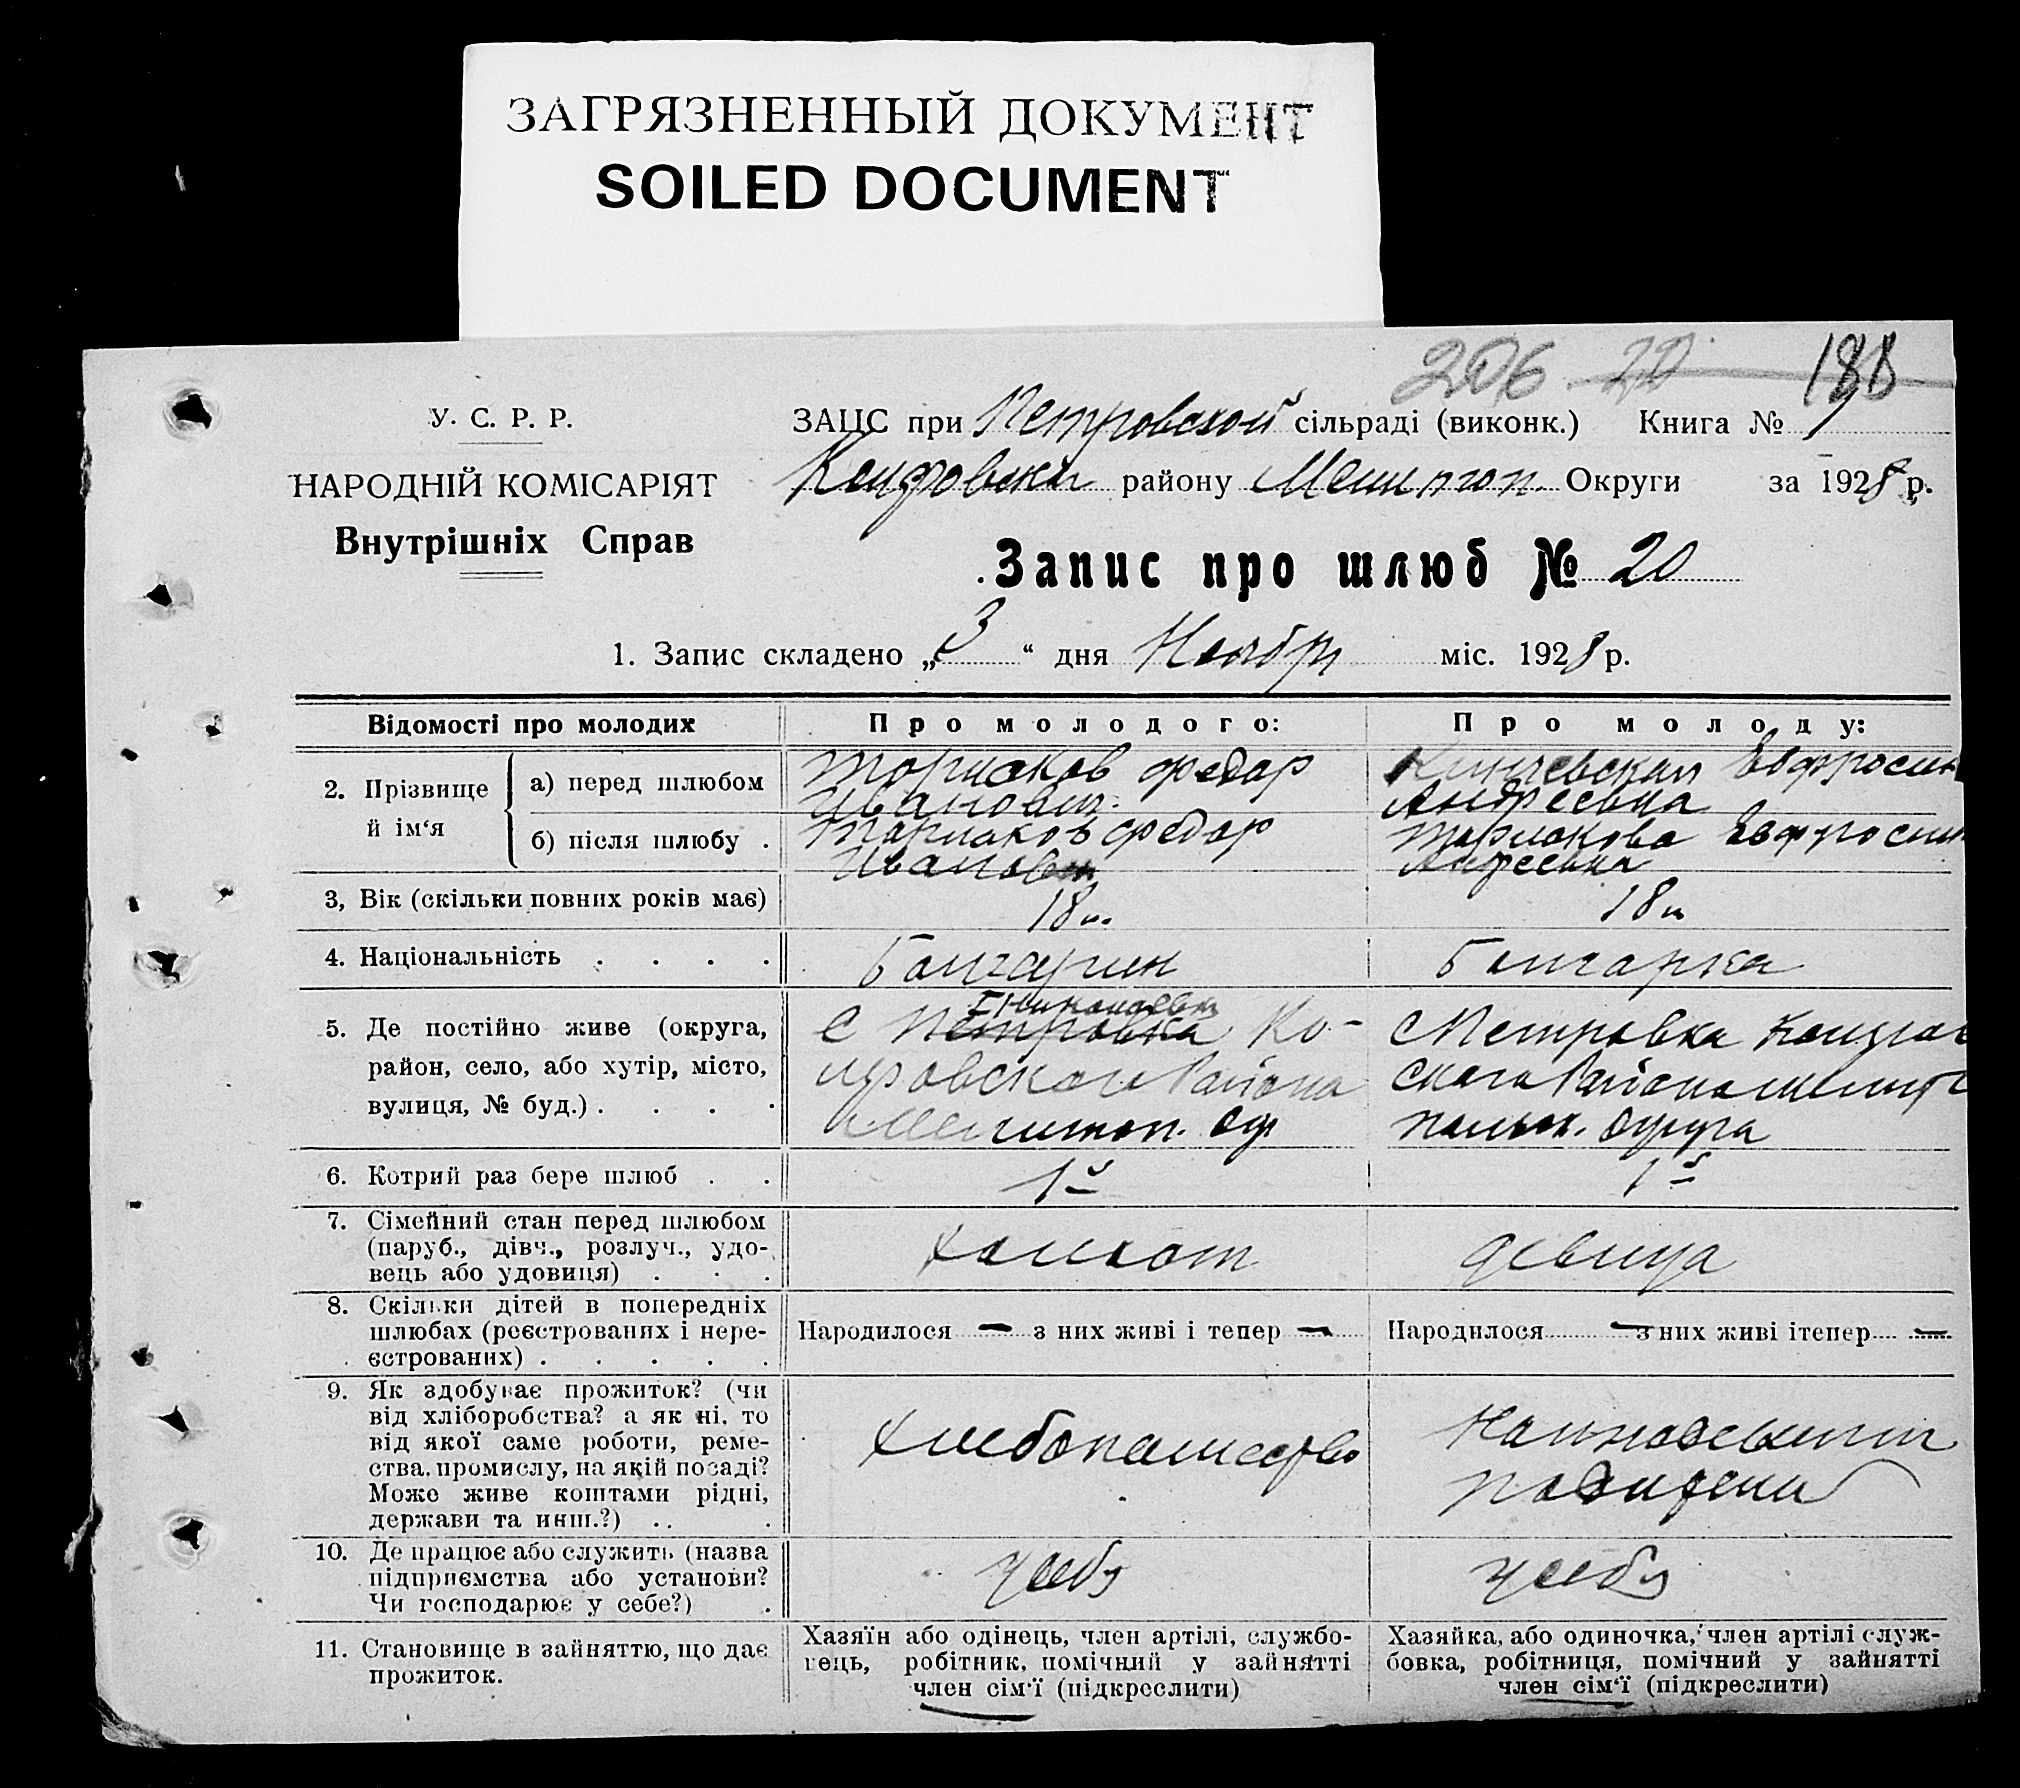 ЗАГРЯЗНЕННЫЙ ДОКУМЕНТ
SOILED DOCUMENT
206 20 188
У. С. Р. Р.
НАРОДНІЙ КОМІСАРІЯТ
Внутрішніх Справ
ЗАЦС при Петровской сільраді (виконк.) Книга № 1
району Округи за 1928 р.
Запис про шлюб № 20
1. Запис складено „3“ дня Ноября міс. 1928 р.
Відомості про молодих
Про молодого:
Про молоду:
2. Прізвище й ім‘я
а) перед шлюбом
Федор
Иванович
Евфросин
Андреевна
б) після шлюбу .
Федор
Иванович
Евфросин
Андреевна
3, Вік (скільки повних років має)
18 л.
18 л
4. Національність . . . .
Болгарин
Болгарка
5. Де постійно живе (округа,
район, село, або хутір, місто,
вулиця, № буд.) . . . .
с Петровка Ко-
Района
Мелитоп. Окр
с Петровка
польск. округа
6. Котрий раз бере шлюб . .
1й
1й
7. Сімейний стан перед шлюбом
(паруб., дівч., розлуч., удо-
вець або удовиця) . . .
холост
девица
8. Скільки дітей в попередніх
шлюбах (реєстрованих і нере-
єстрованих) . . . . .
Народилося — з них живі і тепер —
Народилося — з них живі ітепер —
9. Як здобуває прожиток? (чи
від хліборобства? а як ні, то
від якої саме роботи, реме-
ства, промислу, на якій посаді?
Може живе коштами рідні,
держави та инш.?) . . .
хлебопашество
10. Де працює або служить (назва
підприємства або установи?
Чи господарює у себе?) .
у себя
у себя
11. Становище в зайняттю, що дає
прожиток.
Хазяїн або одінець, член артілі, службо-
вець, робітник, помічний у зайнятті
член сім‘ї (підкреслити)
Хазяйка, або одиночка, член артілі служ-
бовка, робітниця, помічний у зайнятті
член сім‘ї (підкреслити)